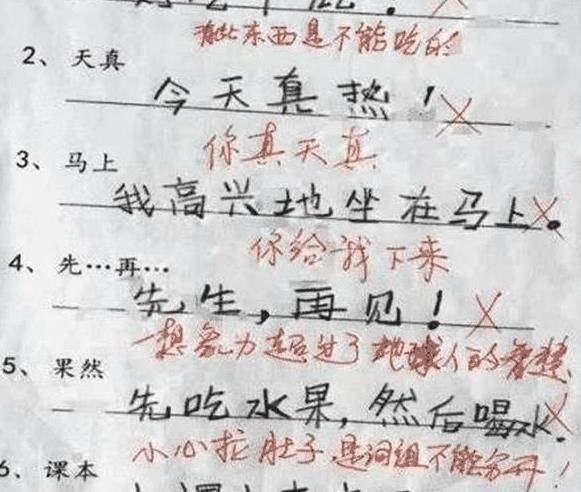 有些东西是不能吃的
2、天真
今天真热！
你真天真
3、马上
我高兴地坐在马上。
你给我下来
4、先…再…
先生，再见！
想象力超过了地球人的智慧
5、果然
先吃水果，然后喝水.
小心拉肚子，是词组不能分开！
6、课本